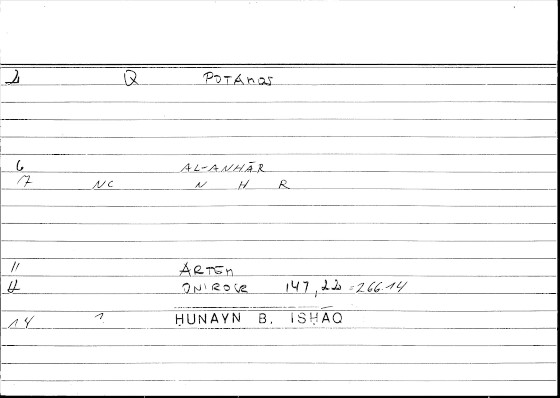 2 Q POTAMOS
6 AL-ANHĀR
17 NC N H R
11 ARTEM
4 ONIROCR 147,22 = 266.14
14 ? ḤUNAYN B. ISḤĀQ